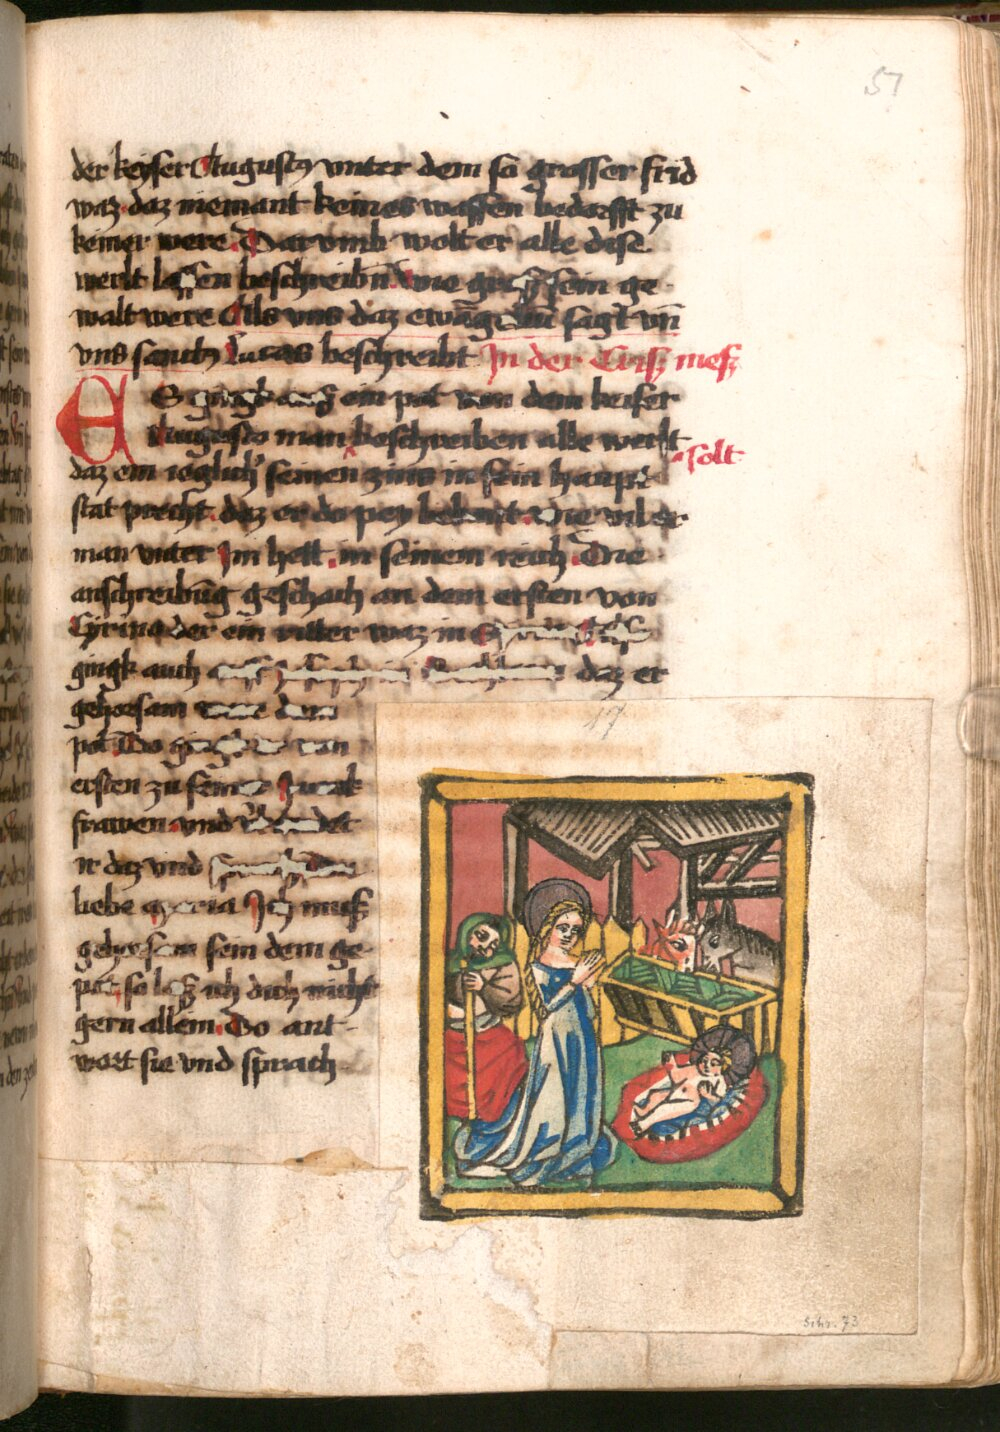 51
der keyser Augustus vnter dem so grosser frid
waz daz niemant keines waffen bedorfft zu
keiner were. Dar vmb wolt er alle dise
werlt lassen beschreibn̄. wie groß sein ge-
walt were Als vns daz ewāgeliū sagt vn̄
vns sanctus lucas beschreibt In der Crist mess
ES gingk auß ein pot von dem keiser
Augusto man beschreiben alle werlt
solt
daz ein icglich' seinen zins in sein haupt
stat precht. daz er do pey bekent. Wie vil er
man vnter Im hett. in seinem reich. Die
anschreibūg geschach an dem ersten von
Cyrino der ein ritter waz in
gingk auch daz er
gehorsam were dem
pot. Do gingk er von
ersten zu seiner Junck
frawen. vnd
ir daz vnd
liebe maria Ich muß
gehorsam sein dem ge-
pot. so loß ich dich nicht
gern allein. Do ant-
wort sie vnd sprach
17
Schr. 73